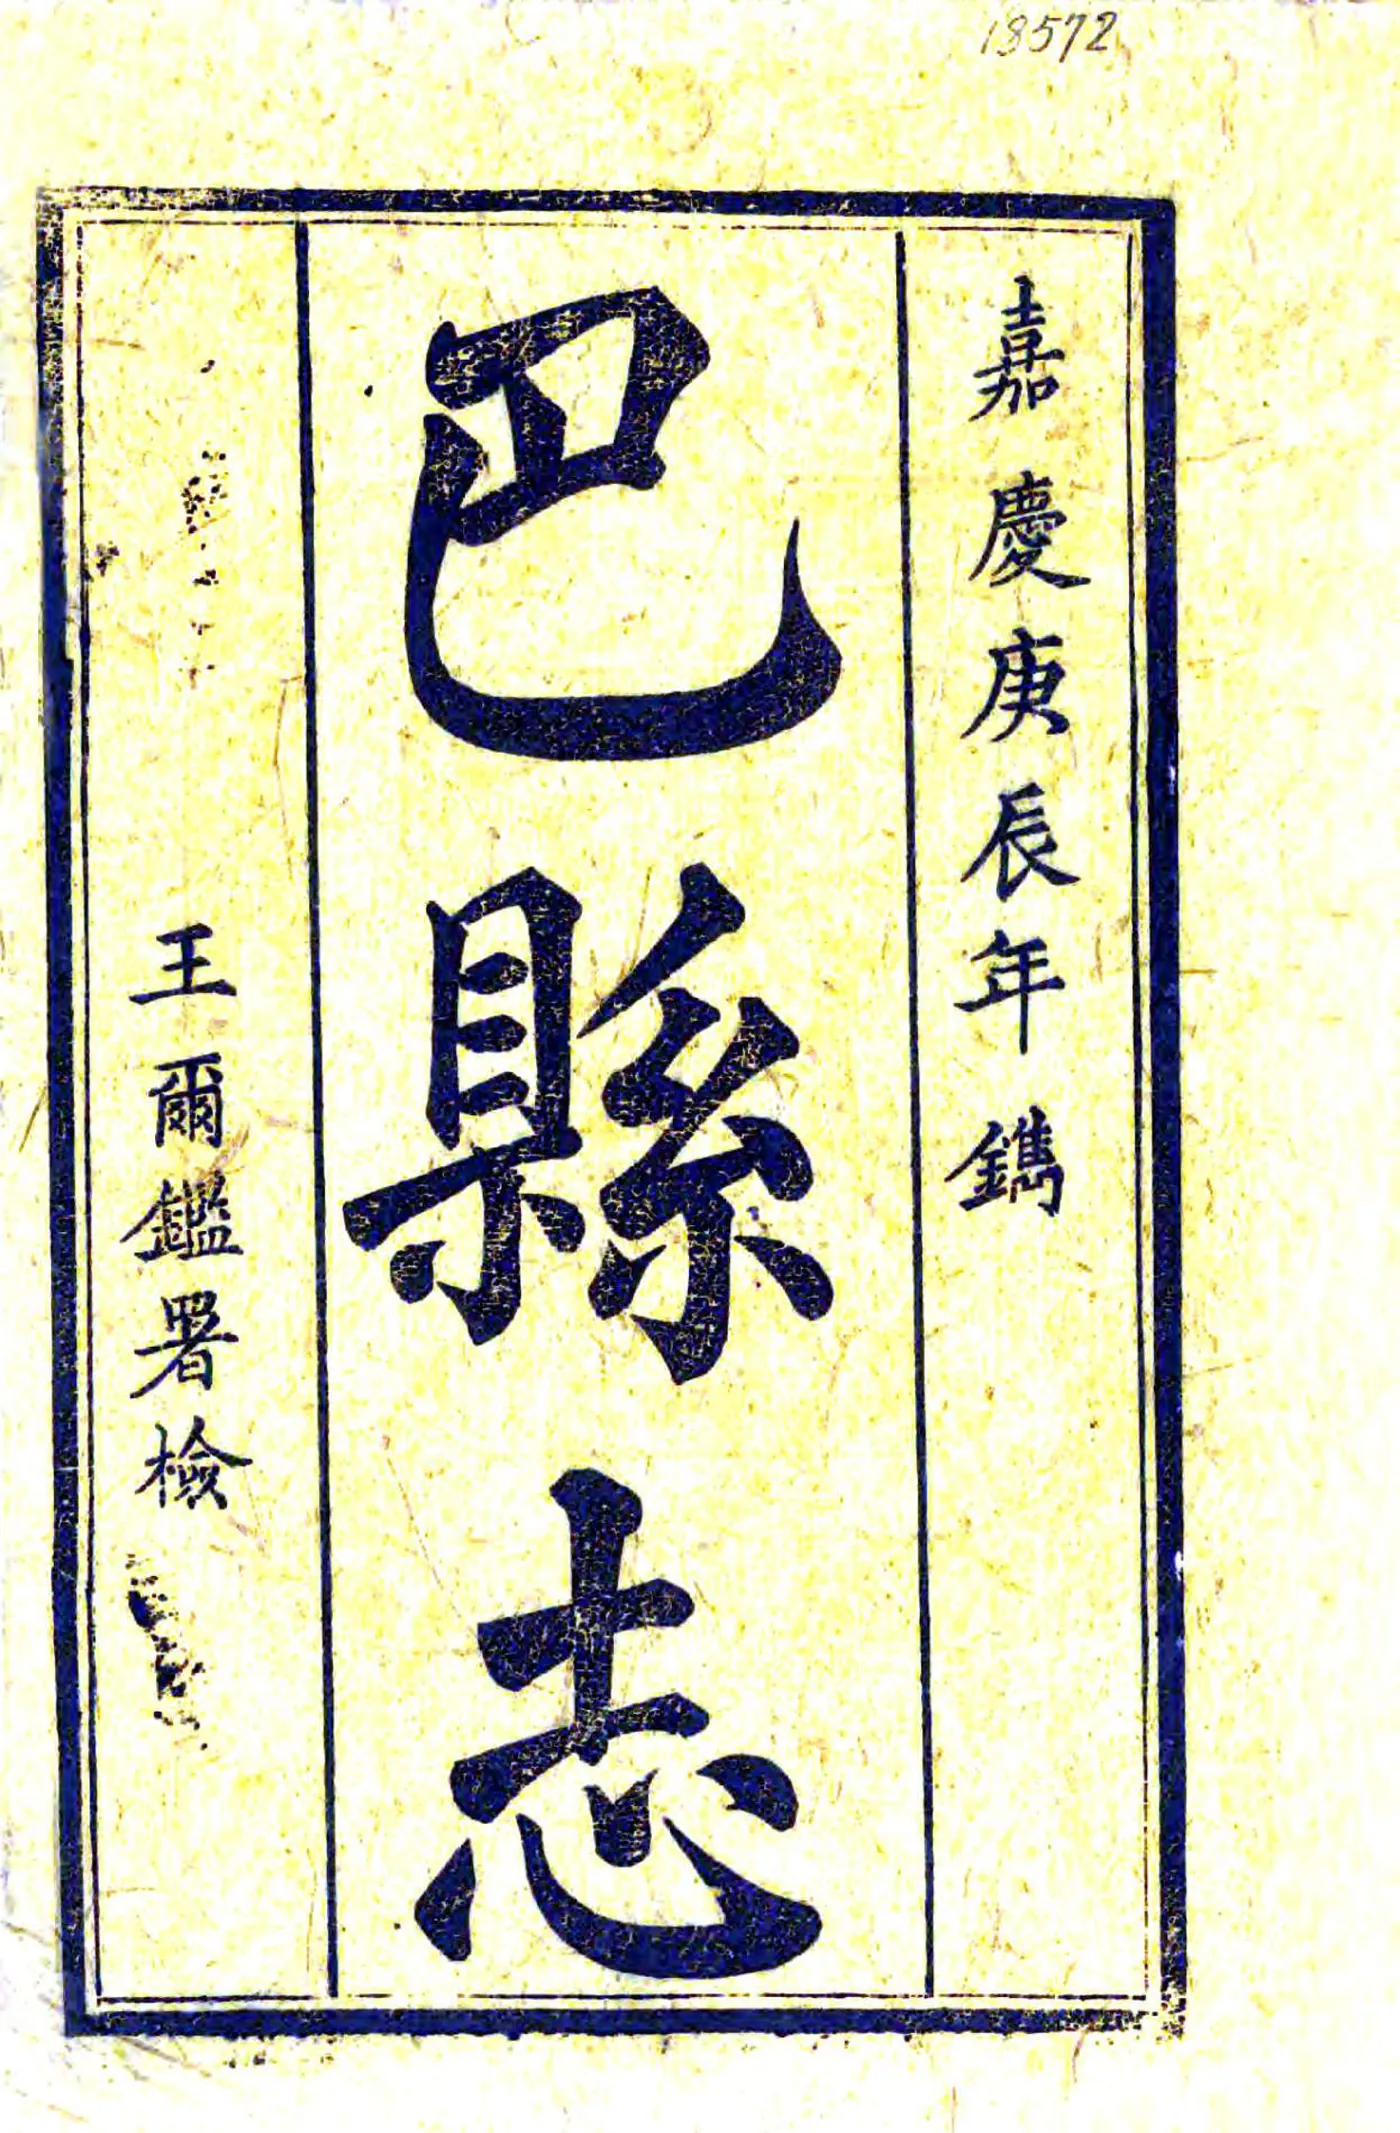 18572
嘉慶庚辰年鐫
巴縣志
王爾鑑署檢